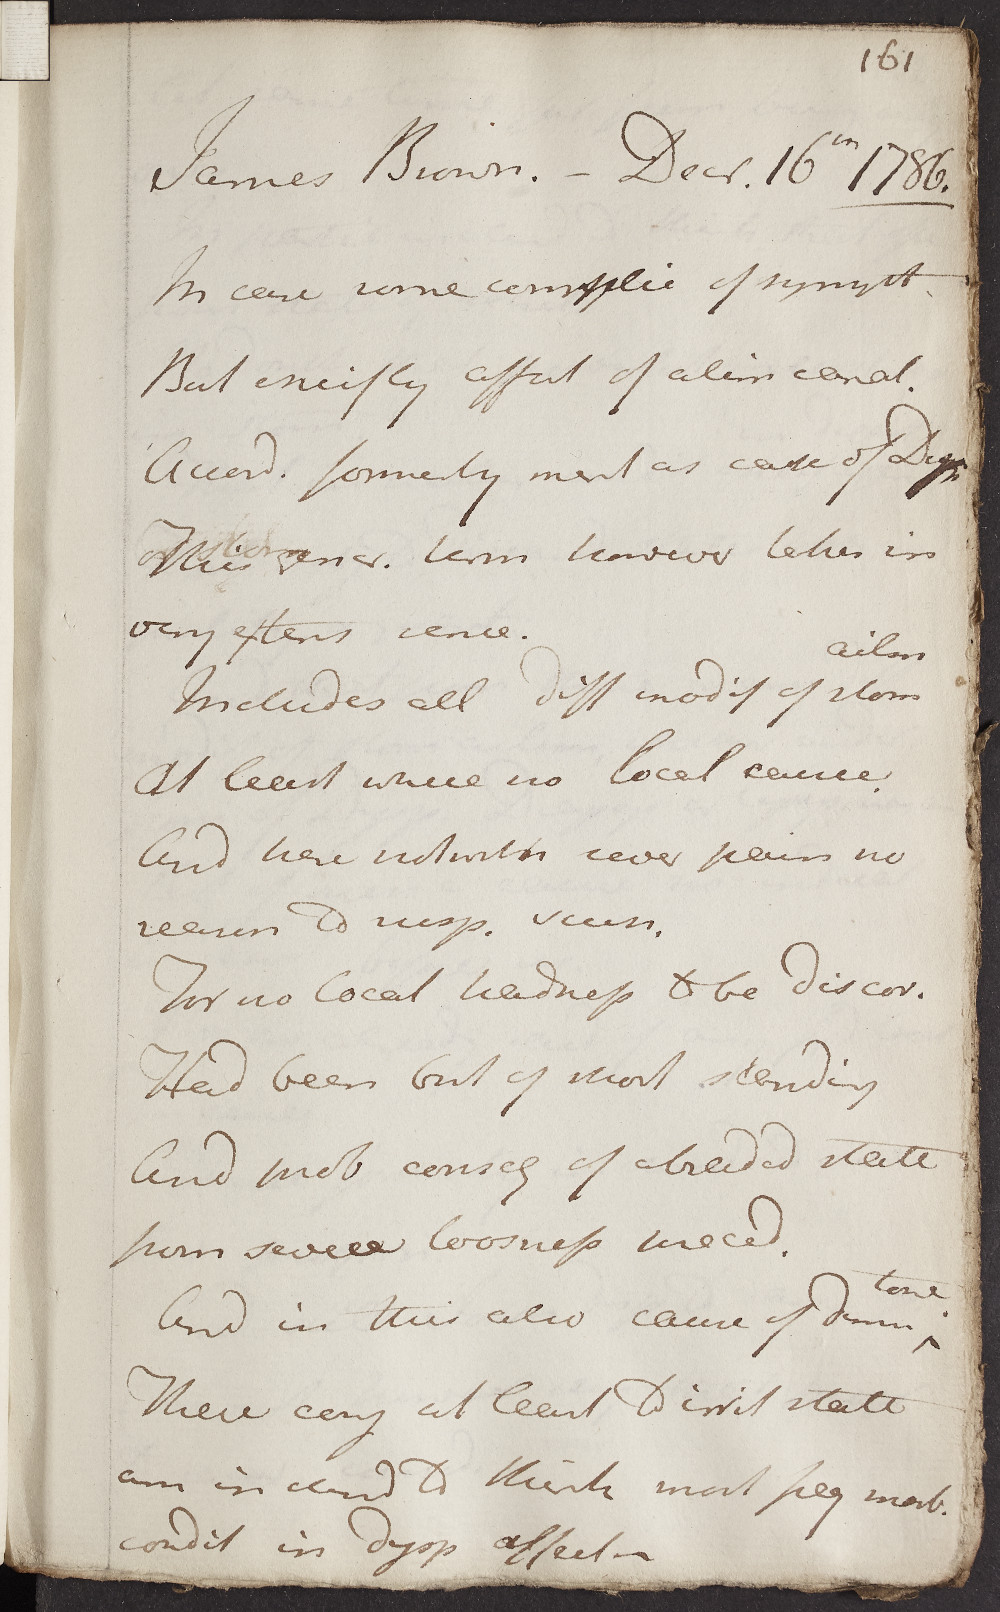 161
James Brown. - Decr. 16th 1786.
In case some complic of sympt.
But chiefly affect of alim canal.
Accord. formerly ment as case of Dysp
This gener. term however taken in
very extens sence.
ailm
Includes all diff modif of stom
At least where no local cause.
And here notwith sever pain no
reason to susp. scirr.
For no local hardness to be discov.
Had been but of short standing
And prob conseq of abraded state
from severe loosness preced.
And in this also cause of dimin
tone.
These conj at least to irrit state
am inclind to think most freq morb.
condit in dysp affect